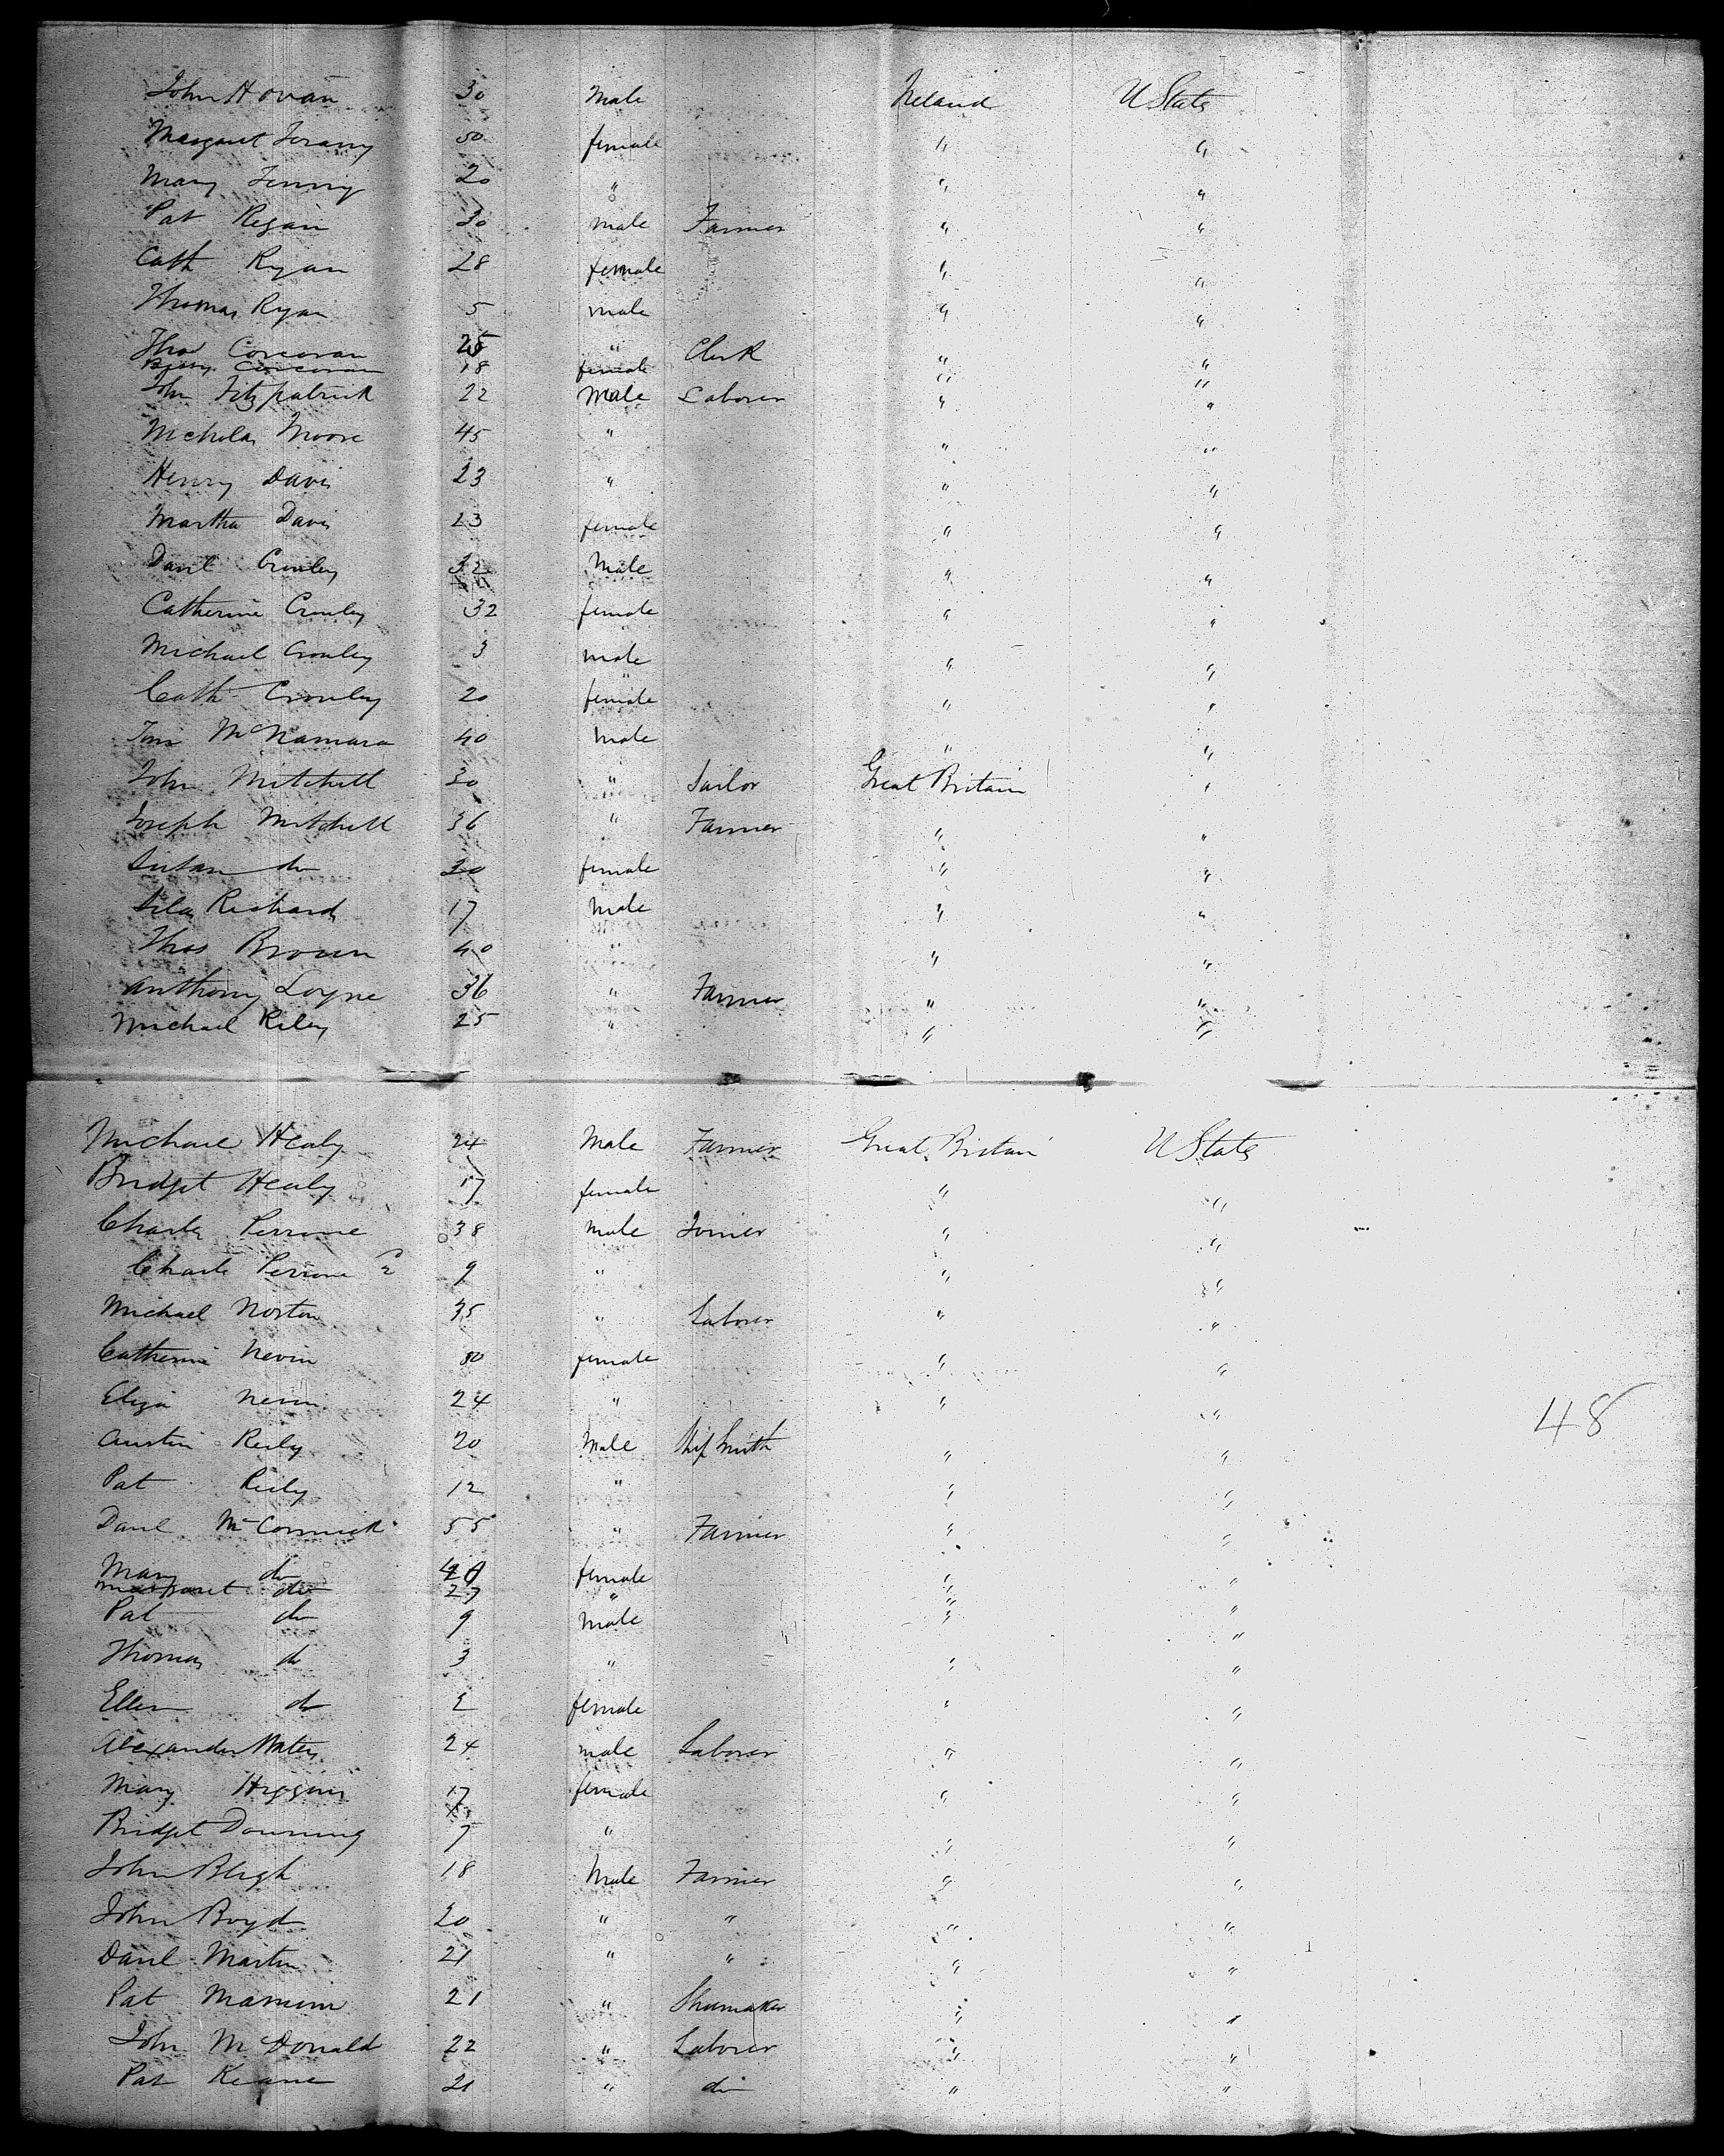 John Hovan 30 Male Ireland U States
Margaret 50 female " "
Mary 20 " " "
Pat Regan 30 male Farmer " "
Cath Ryan 28 female " "
Thomas Ryan 5 male " "
Thos Corcoran 25 " Clerk " "
Corcoran 18 female " "
John Fitzpatrick 22 Male Laborer " "
Nicholas Moore 45 " " "
Henry Davis 23 " " "
Martha Davis 23 female " "
Danl Crowley 32 Male " "
Catherine Crowley 32 female " "
Michael Crowley 3 male " "
Cath Crowley 20 female " "
Tim McNamara 40 Male " "
John Mitchell 30 " Great Britain "
Joseph Mitchell 36 " Farmer " "
Susan do 30 female " "
Silas Richards 17 Male " "
Thos Brown 40 " " "
Anthony Loyne 36 " Farmer " "
Michael Riley 25 " " "
Michael Healy 24 Male Farmer Great Britain U States
Bridget Healy 17 female " "
Charles Perrone 38 Male Joiner " "
Charles Perrone 2 9 " " "
Michael Norton 35 " Laborer " "
Catherine Nevin 50 female " "
Eliza Nevin 24 " " "
48
Austin Reily 20 Male Ship Smith " "
Pat Reily 12 " " "
Danl McCormick 55 " Farmer " "
Mary do female " "
Margaret do 27 " " "
Pat do 9 Male " "
Thomas do 3 " " "
Ellen do 2 female " "
Alexander Waters 24 male Laborer " "
Mary Higgins 17 female " "
Bridget Downing 7 " " "
John Bligh 18 Male Farmer " "
John Boyd 20 " " " "
Danl Martin 21 " " " "
Pat 21 " Shumaker " "
John McDonald 22 " Laborer " "
Pat Keane 21 " do " "